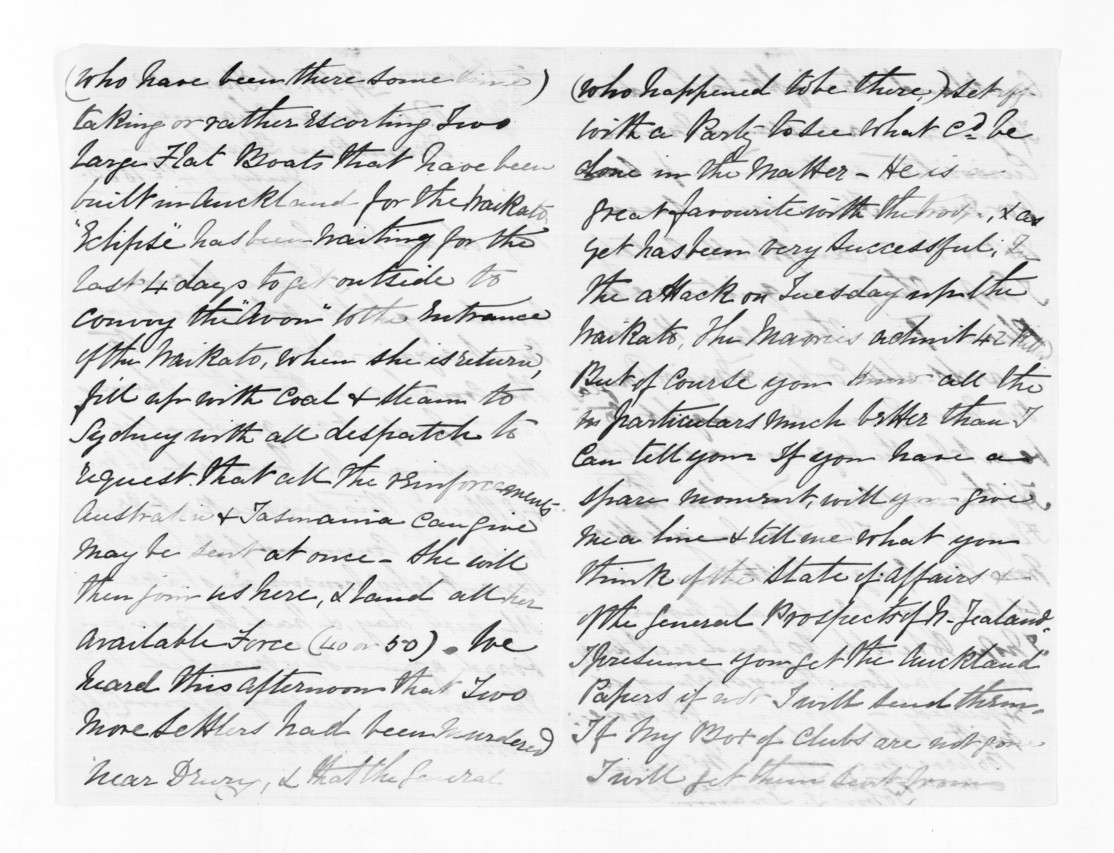 (who have been there some time)
taking or rather escorting Two
large Flat Boats that have been
built in Auckland for the Waikato.
"Eclipse" has been waiting for the
last 4 days to get outside to
convoy the "Avon" to the Entrance
of the Waikato, when she is return,
fill up with Coal & steam to
Sydney with all despatch to
request that all the reinforcements
Australia & Tasmania can give
may be sent at once - She will
then join us here, & land all her
available Force (40 or 50). We
heard this afternoon that Two
more Settlers had been murdered
near Drury, & that the General
(who happened to be there,) set off
with a Party to see what cd. be
done in the matter - He is a
great favourite with the troops, & as
yet has been very successful, in
the attack on Tuesday up the
Waikato, the Maories admit 42
But of course you know all the
particulars much better than I
can tell you - If you have a
spare moment, will you give
me a line & tell me what you
think of the State of affairs &
of the General Prospects of N. Zealand.
I presume you get the Auckland
Papers if not I will send them.
If my Box of Clubs are not gone
I will get them sent from